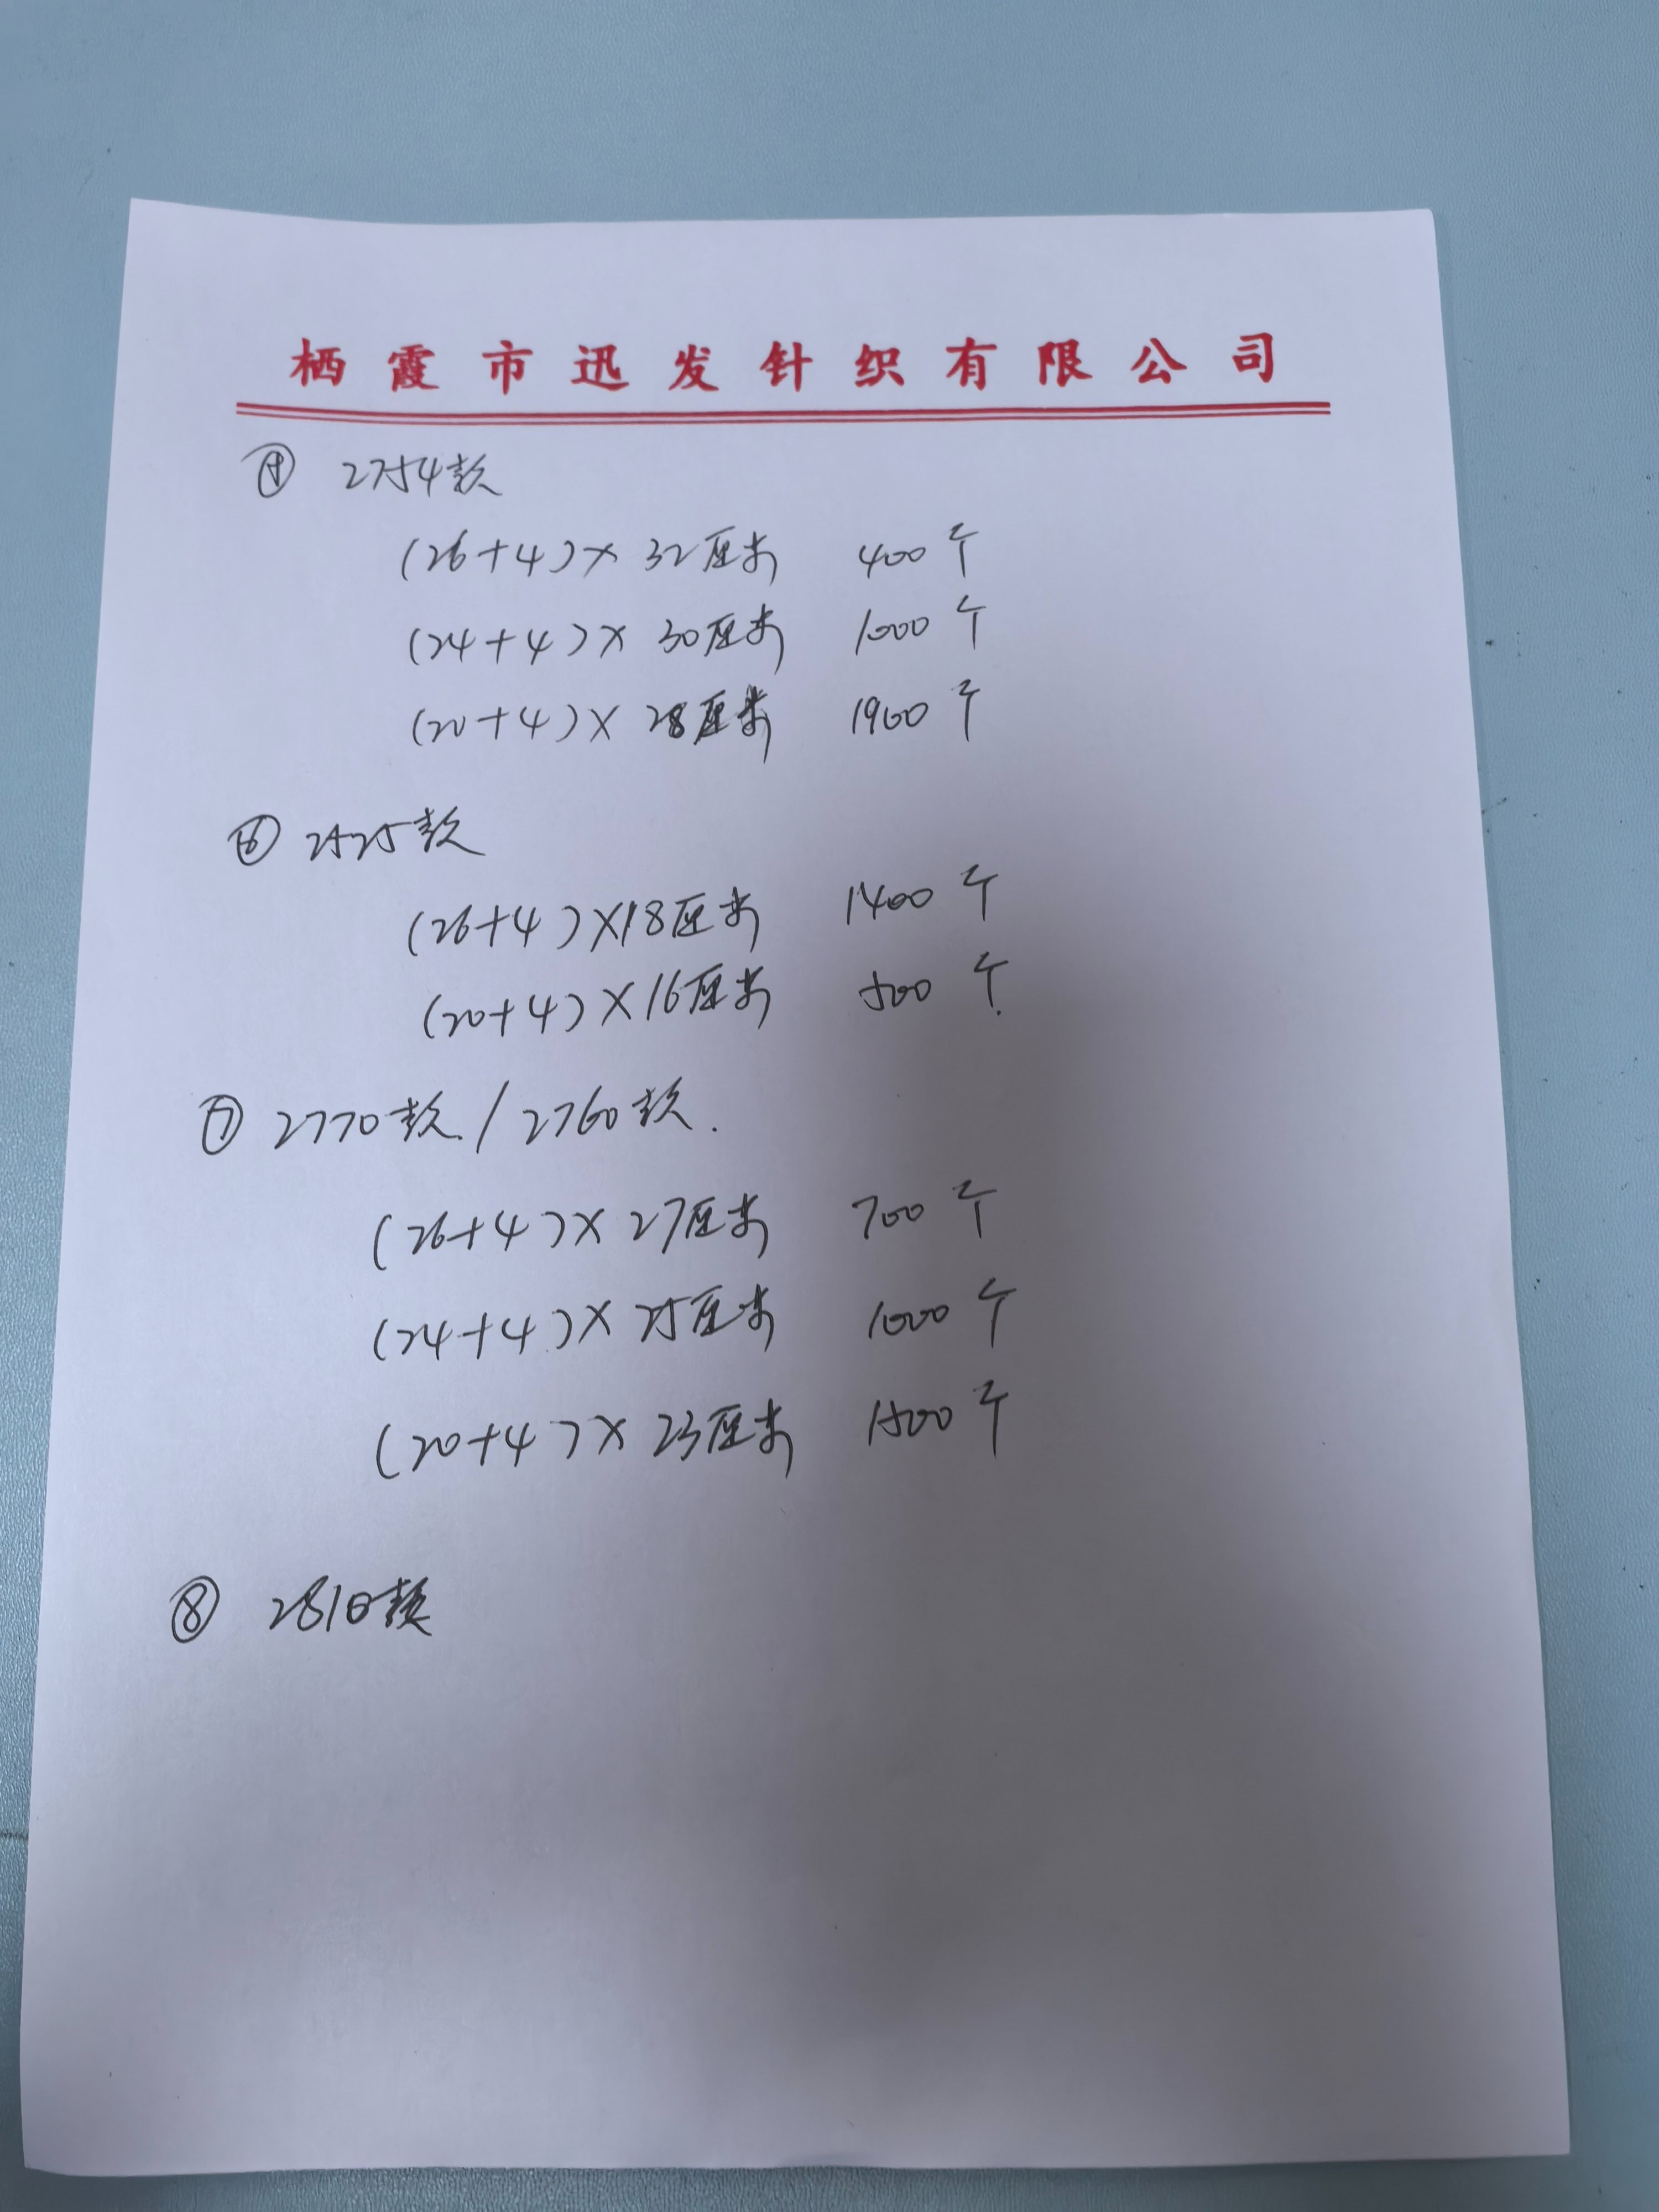 栖霞市迅发针织有限公司
2754款
(26+4)×32厘米 400个
(24+4)×30厘米 1000个
(20+4)×28厘米 1900个
⑥ 2525款
(26+4)×18厘米 1400个
(20+4)×16厘米 500个.
⑦ 2770款/2760款.
(26+4)×27厘米 700个
(24+4)×25厘米 1000个
(20+4)×23厘米 1500个
⑧ 2818款